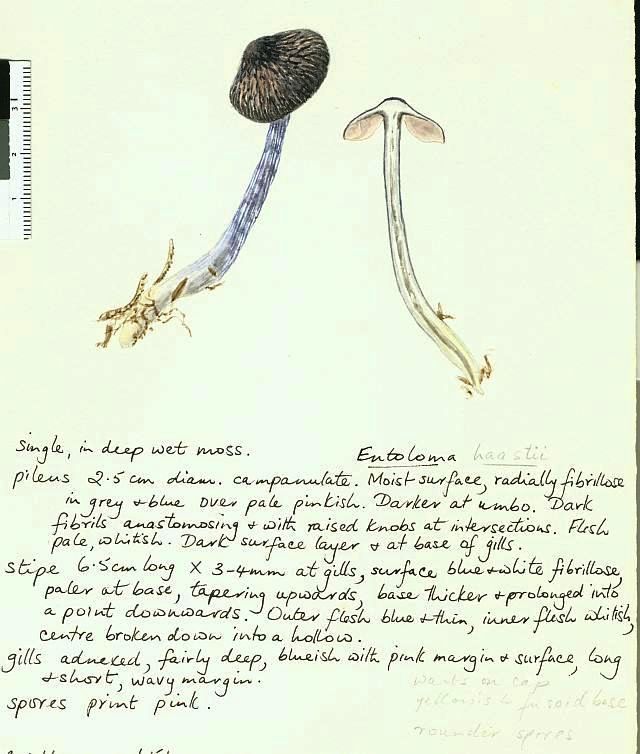 3
2
1
Single, in deep wet moss.
Entoloma haastii
pileus 2.5 cm diam. campanulate. Moist surface, radially fibrillose
in grey + blue over pale pinkish. Darker at umbo. Dark
fibrils anastomosing + with raised knobs at intersections. Flesh
pale, whitish. Dark surface layer + at base of gills.
stipe 6.5cm long X 3-4mm at gills, surface blue + white fibrillose,
paler at base, tapering upwards, base thicker + prolonged into
a point downwards. Outer flesh blue + thin, inner flesh whitish,
centre broken down into a hollow.
gills adnexed, fairly deep, blueish with pink margin + surface, long
+ short, wavy margin.
spores print pink.
warts on cap
yellowish fusoid base
rounder spores